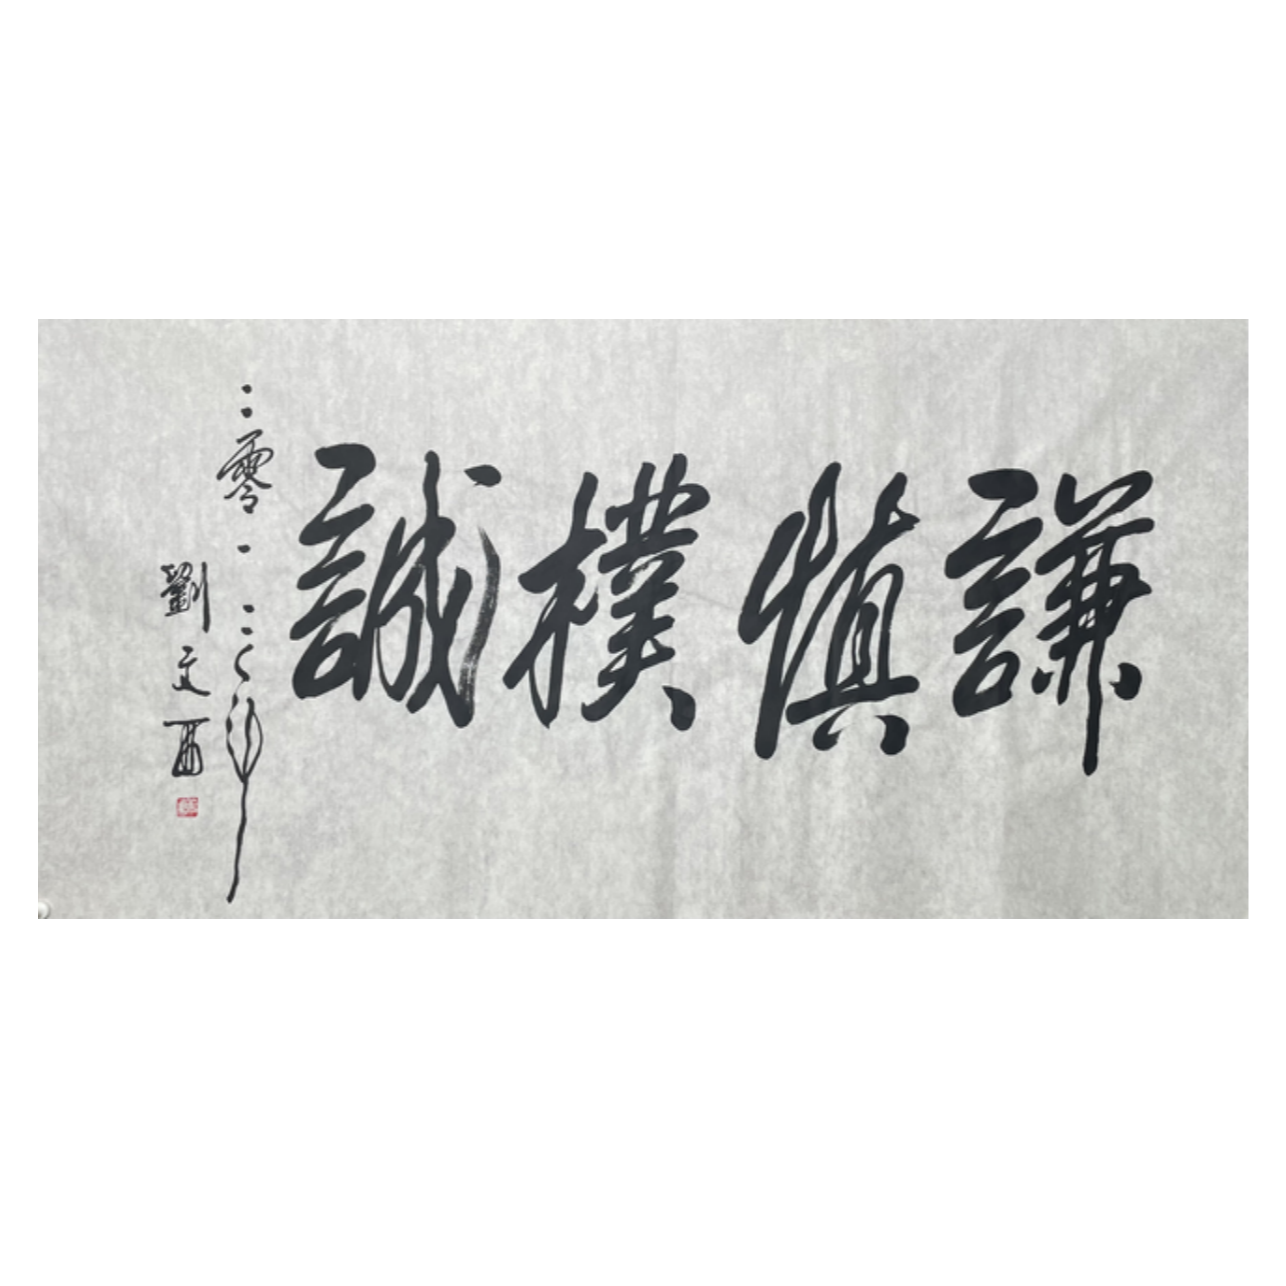 謙慎樸誠
二零一二年
劉文酉